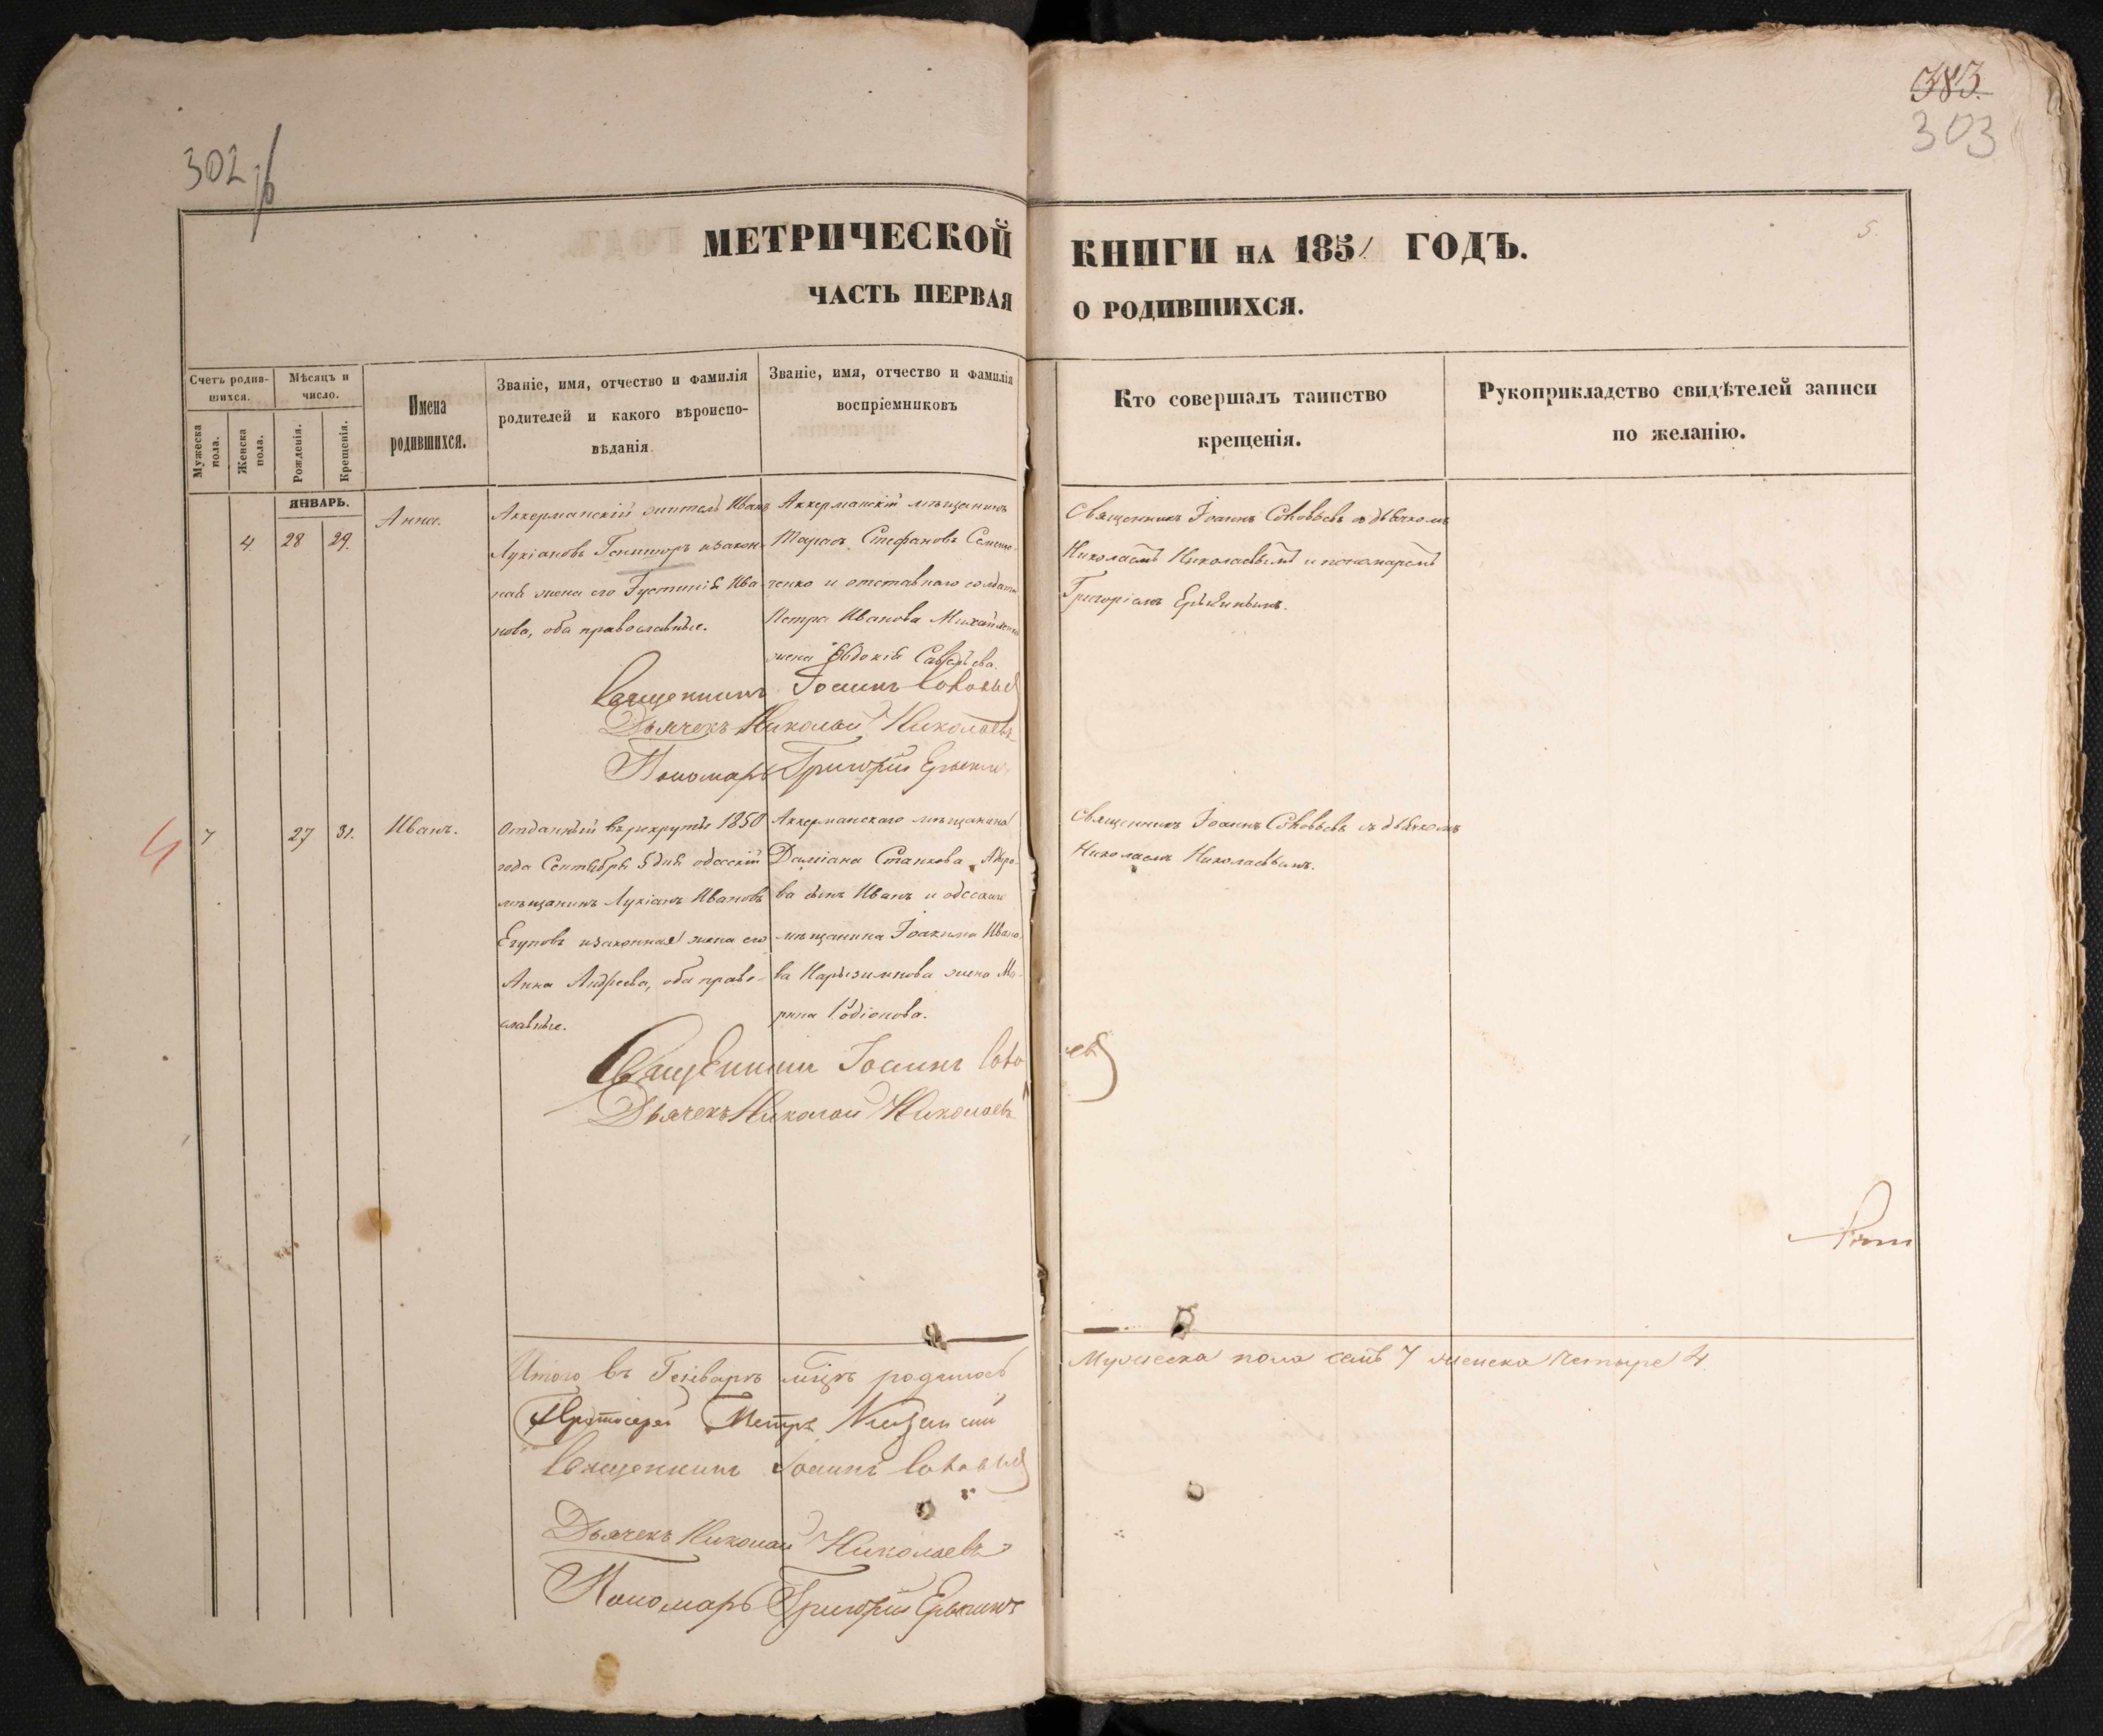 302
383.
303
5.
МЕТРИЧЕСКОЙ КНИГИ НА 1851 ГОДЪ.
ЧАСТЬ ПЕРВАЯ О РОДИВШИХСЯ.
Счетъ родив-
шихся.
Мужеска пола.
Женска пола.
Мѣсяцъ и
число.
Рожденія.
Крещенія.
Имена
родившихся.
Званіе, имя, отчество и фамилія
родителей и какого вѣроиспо-
вѣданія
Званіе, имя, отчество и фамилія
воспріемниковъ
Кто совершалъ таинство
крещенія.
Рукоприкладство свидѣтелей записи
по желанію.
ЯНВАРЬ.
4. 28 29.
Анна.
Аккерманскій житель Иванъ
Лукіановъ изакон-
ная жена его Іустинія Ива-
нова, оба православные.
Аккерманскій мѣщанинъ
Тарасъ Стефановъ Семено-
ченко и отставнаго солдата
Петра Иванова Михайленка
жена Евдокія Савельева.
Священникъ Іоаннъ Соловьевъ съ дьячкомъ
Николаемъ Николаевымъ и пономаремъ
Григоріемъ
Священникъ Іоаннъ Соловьевъ
Дьячекъ Николай Николаевъ
Пономарь Григорій
4
7 27 31.
Иванъ.
Отданный въ рекруты 1850
года Сентября 5 дня одесскій
мѣщанинъ Лукіанъ Ивановъ
Егуповъ изаконная жена его
Анна Андреева, оба право-
славные.
Аккерманскаго мѣщанина
Даміана Станкова
ва сынъ Иванъ и одесскаго
мѣщанина Іоакима Ивано-
ва жена Ма-
рина Родіонова.
Священникъ Іоаннъ Соловьевъ съ дьячкомъ
Николаемъ Николаевымъ.
Священникъ Іоаннъ Соловьевъ
Дьячекъ Николай Николаевъ
Итого въ Генварѣ мѣсяцѣ родилось Мужеска пола семь 7 женска четыре 4.
Протоіерей Петръ
Священникъ Іоаннъ Соловьевъ
Дьячекъ Николай Николаевъ
Пономарь Григорій